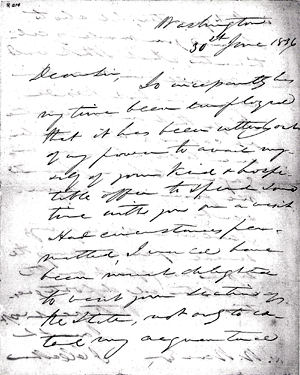 Washington
30th June 1836
Dear Sir, So incessantly has
my time been employed
that it has been utterly out
of my power to avail my
self of your kind & hospi
table offer to spend some
time with you on a visit
Had circumstances per-
mitted, I would have
been most delighted
to visit your section of
the State, not only to ex
tend my acquaintance